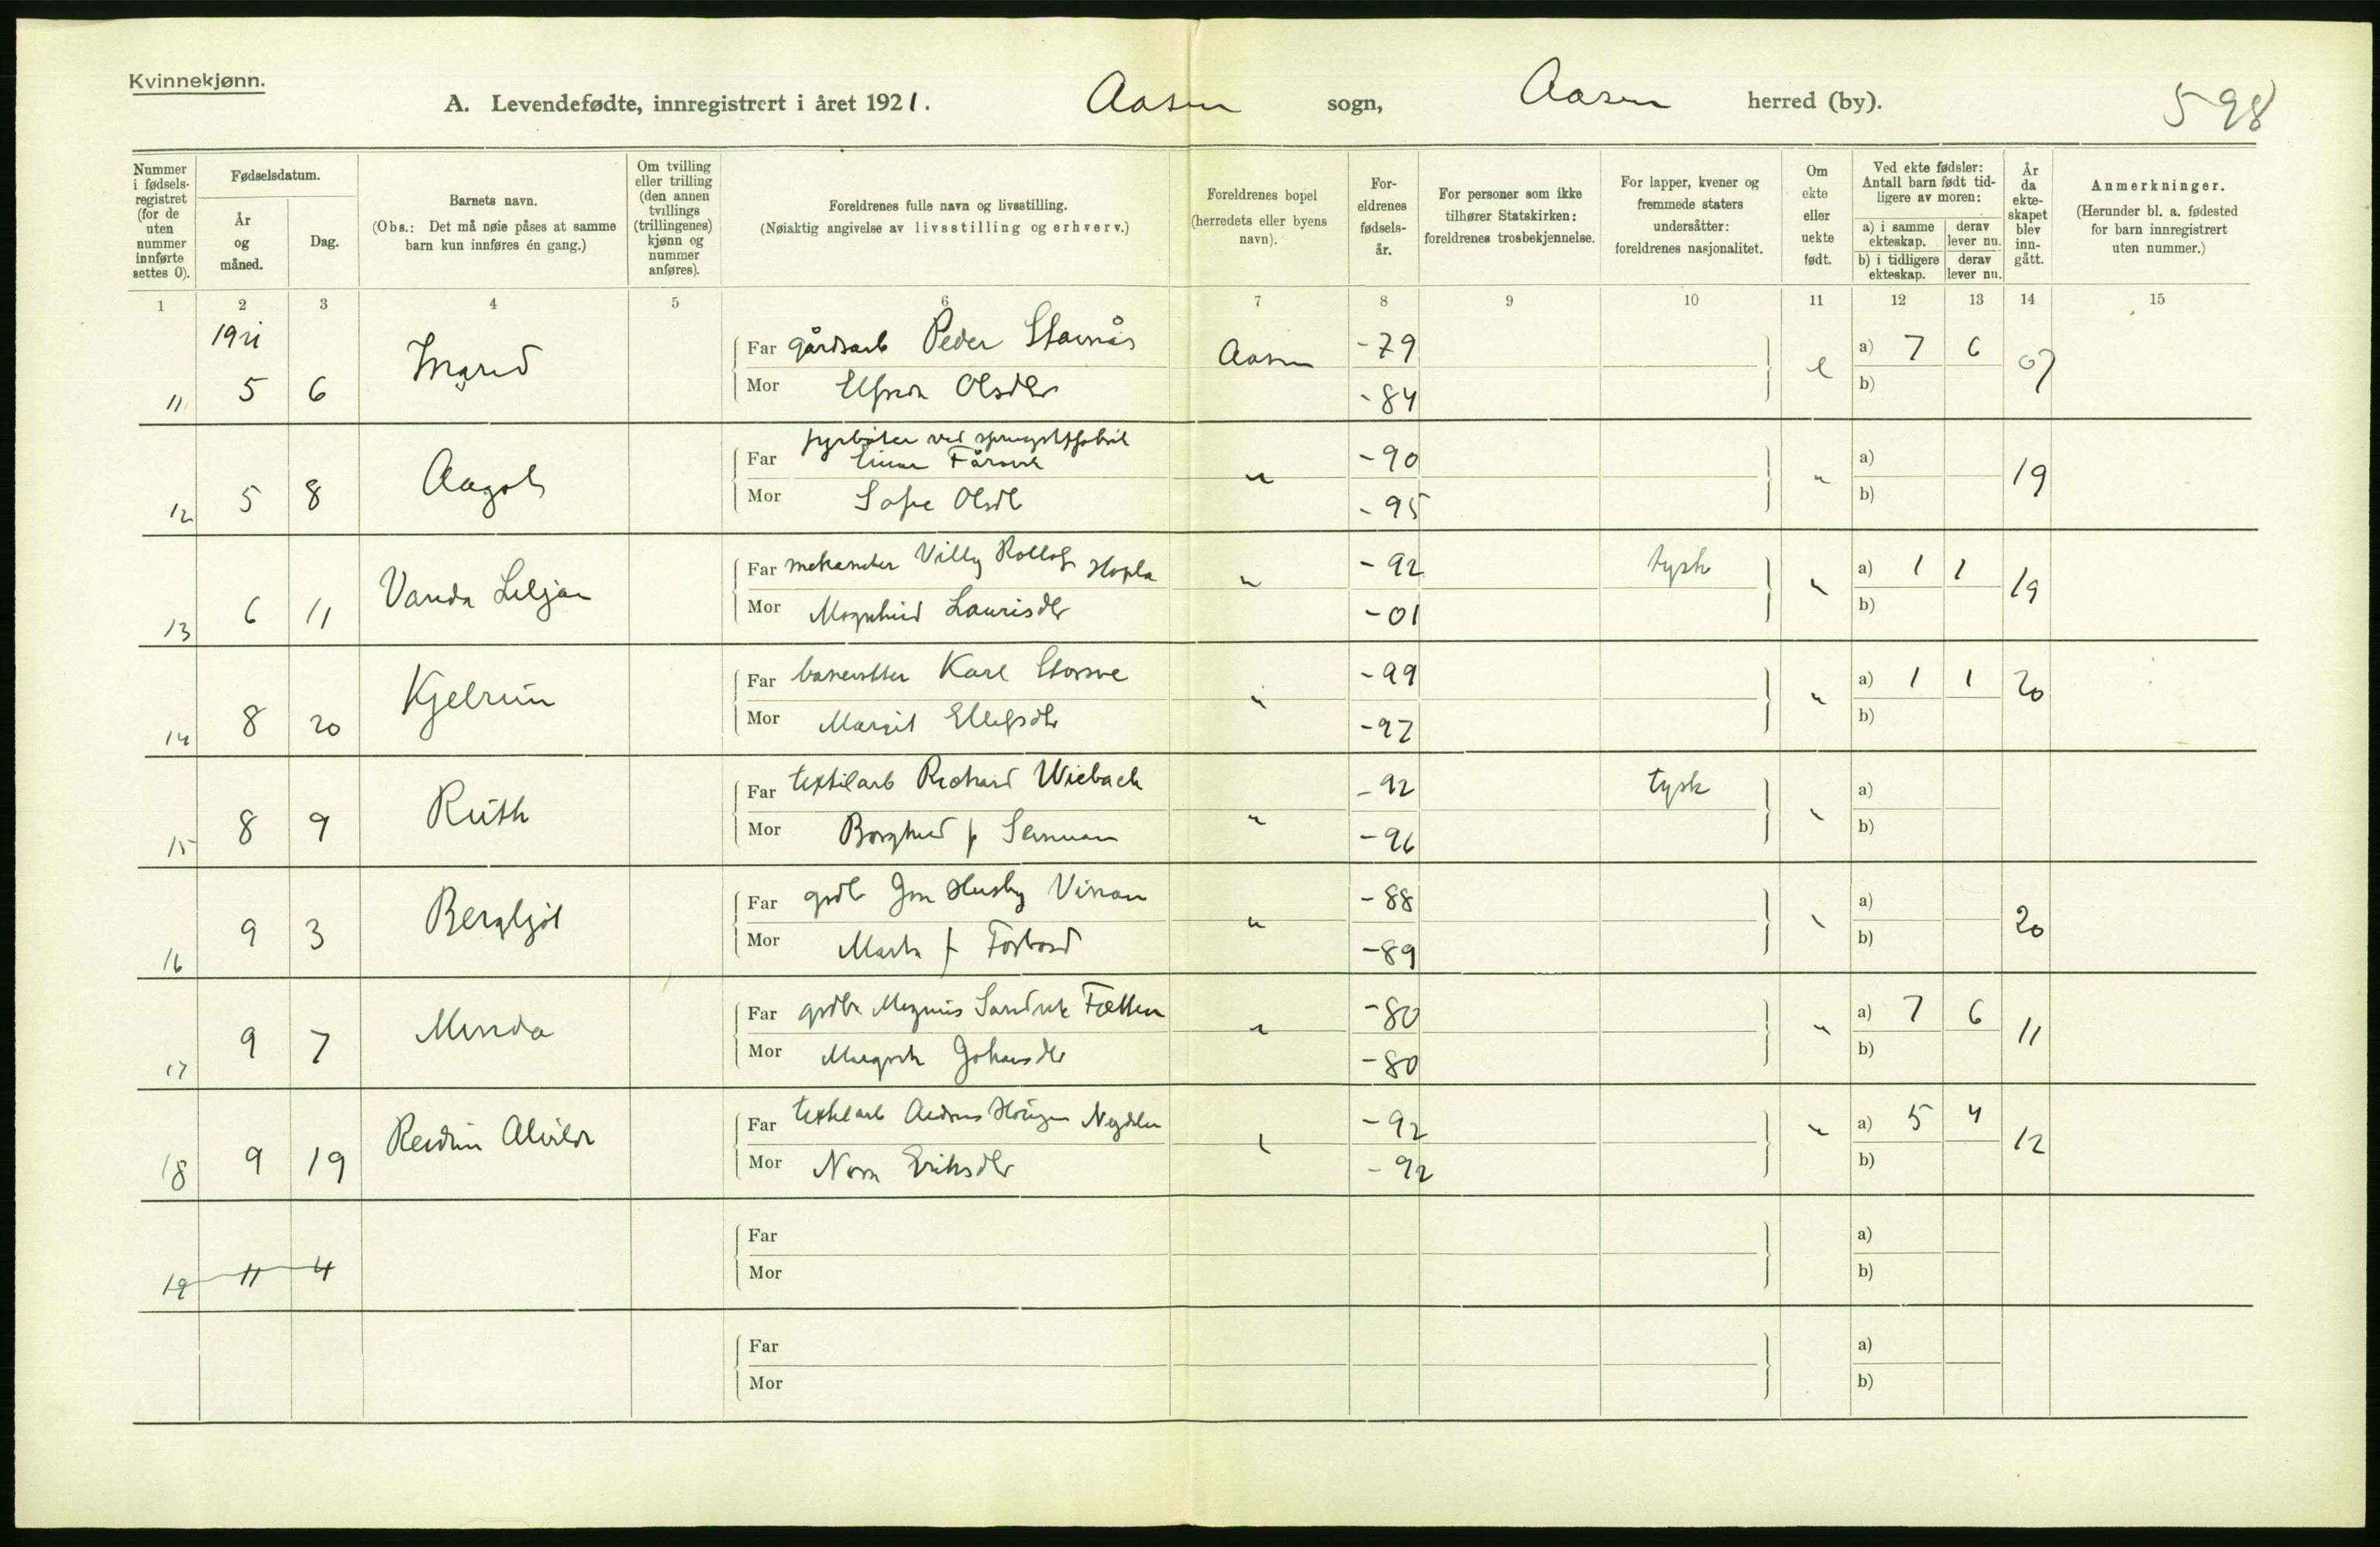 Kvinnekjønn.
A. Levendefødte, innregistrert i året 1921. Aasen sogn, Aasen herred (by). 598
Nummer i fødselsregistret (for de uten nummer innførte settes 0).
Fødselsdatum.
År og måned.
Dag.
Barnets navn.
(Obs.: Det må nøie påses at samme barn kun innføres én gang.)
Om tvilling eller trilling (den annen tvillings (trillingenes) kjønn og nummer anføres).
Foreldrenes fulle navn og livsstilling.
(Nøiaktig angivelse av livsstilling og erhverv.)
Foreldrenes bopel (herredets eller byens navn).
Foreldrenes fødselsår.
For personer som ikke tilhører Statskirken: foreldrenes trosbekjennelse.
For lapper, kvener og fremmede staters undersåtter: foreldrenes nasjonalitet.
Om ekte eller uekte født.
Ved ekte fødsler: Antall barn født tidligere av moren:
a) i samme ekteskap. derav lever nu.
b) i tidligere ekteskap. derav lever nu.
År da ekteskapet blev inngått.
Anmerkninger.
(Herunder bl. a. fødested for barn innregistrert uten nummer.)
1 2 3 4 5 6 7 8 9 10 11 12 13 14 15
1921
11 5 6 Ingrid Far gårdsarb Peder Aasen -79 e a) 7 6 07
Mor Olsdtr -84 b)
12 5 8 Aagot Far fyrbøter ved
Einar " -90 " a) 19
Mor Sofie Olsdt -95 b)
13 6 11 Vanda Far Villy Hopla " -92 tysk " a) 1 1 19
Mor Laurisdtr -01 b)
14 8 20 Kjelrun Far Karl " -99 " a) 1 1 20
Mor Margit -97 b)
15 8 9 Ruth Far textilarb Richard Wiebach " -92 tysk " a)
Mor Borghild f -96 b)
16 9 3 Bergljot Far grdb Jon Husby " -88 " a) 20
Mor f Forbord -89 b)
17 9 7 Minda Far grdbr Magnus Fætten " -80 " a) 7 6 11
Mor Johansdtr -80 b)
18 9 19 Reidun Alvilde Far textilarb " -92 " a) 5 4 12
Mor Nora Eriksdtr -92 b)
19 11 4 Far a)
Mor b)
Far a)
Mor b)